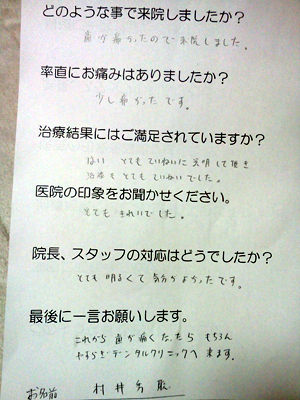 どのような事で来院しましたか？
歯が痛かったので来院しました。
率直にお痛みはありましたか？
少し痛かったです。
治療結果にはご満足されていますか？
はい とてもていねいに説明して頂き
治療もとてもていねいでした。
医院の印象をお聞かせください。
とてもきれいでした。
院長、スタッフの対応はどうでしたか？
とても明るくて気分がよかったです。
最後に一言お願いします。
これから歯が痛くなったら もちろん
やすらぎデンタルクリニックへ来ます。
お名前 村井